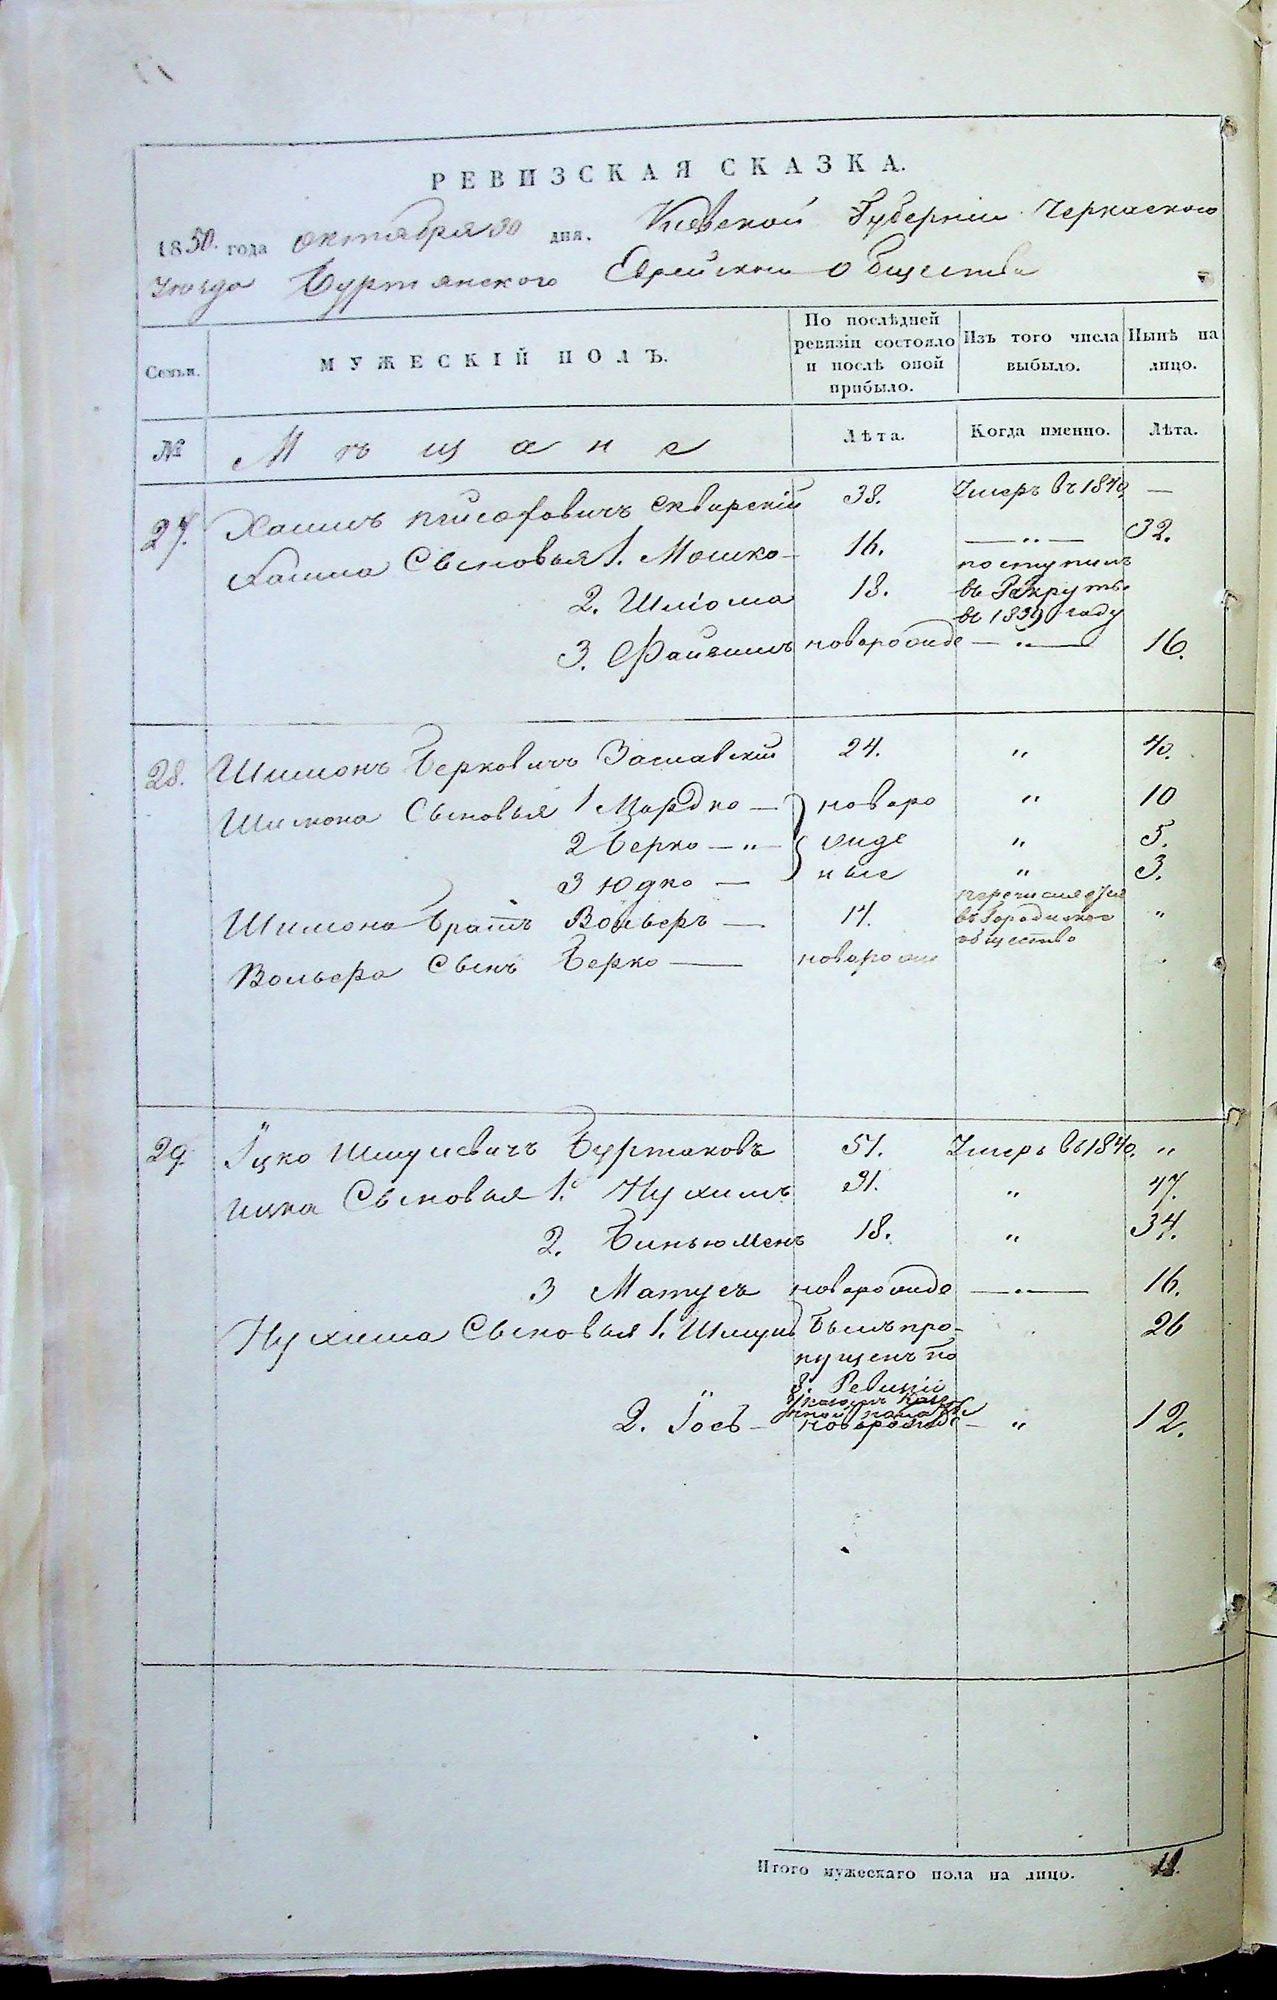 РЕВИЗСКАЯ СКАЗКА.
1850. года октября 30 дня. Киевской Губернии Черкаского
уѣзда Буртянского Еврейского общества
Семьи. МУЖЕСКІЙ ПОЛЪ. По послѣдней ревизіи состояло и послѣ оной прибыло. Изъ того числа выбыло. Нынѣ на лицо.
№ Мѣщане Лѣта. Когда именно. Лѣта.
27. Хаимъ Сквирскій 38. Умеръ въ 1840. —
Хаима Сыновья 1. Мошко — 16. — „ — 32.
2. Шліома 18. поступилъ въ Рекруты въ 1839 году
3. Файвишъ новорожде — „ — 16.
28. Шимонъ Берковичъ Заславскій 24. „ 40.
Шимона Сыновья 1 Мордко — новоро „ 10
2 Берко — „ — жде „ 5.
3 Юдко — ные „ 3.
Шимона братъ Вольфъ — 14. перечислился въ Городиское общество „
Вольфа Сынъ Берко — новорож
29. Іцко Шмулевичъ Буртаковъ 51. Умеръ въ 1840. „
Ицка Сыновья 1. Нухимъ 31. „ 47.
2. Биньюменъ 18. „ 34.
3 Матусъ новорожде — „ — 16.
Нухима Сыновья 1. Шмуль Былъ про- 26
пущенъ по
8. Ревизіи
2. Іосъ — новорожде — „ 12.
Итого мужескаго пола на лицо. 11.